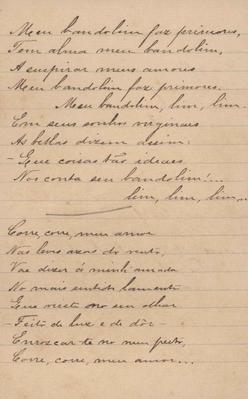 Meu bandolim faz primores,
Tem alma meu bandolim,
A suspirar meus amores
Meu bandolim faz primores.
Meu bandolim, lim, lim...
Em seus sonhos virginaes
As bellas dizem assim:
- Que coisas tão ideaes
Nos conta seu bandolim!...
lim, lim, lim...
Corre, corre, meu amor
Nas leves azas do vento,
Vae dizer á minh'amada
No mais sentido lamento
Que no seu olhar
- Feito de luz e de dôr -
Enroscar-te no meu peito,
Corre, corre, meu amor...